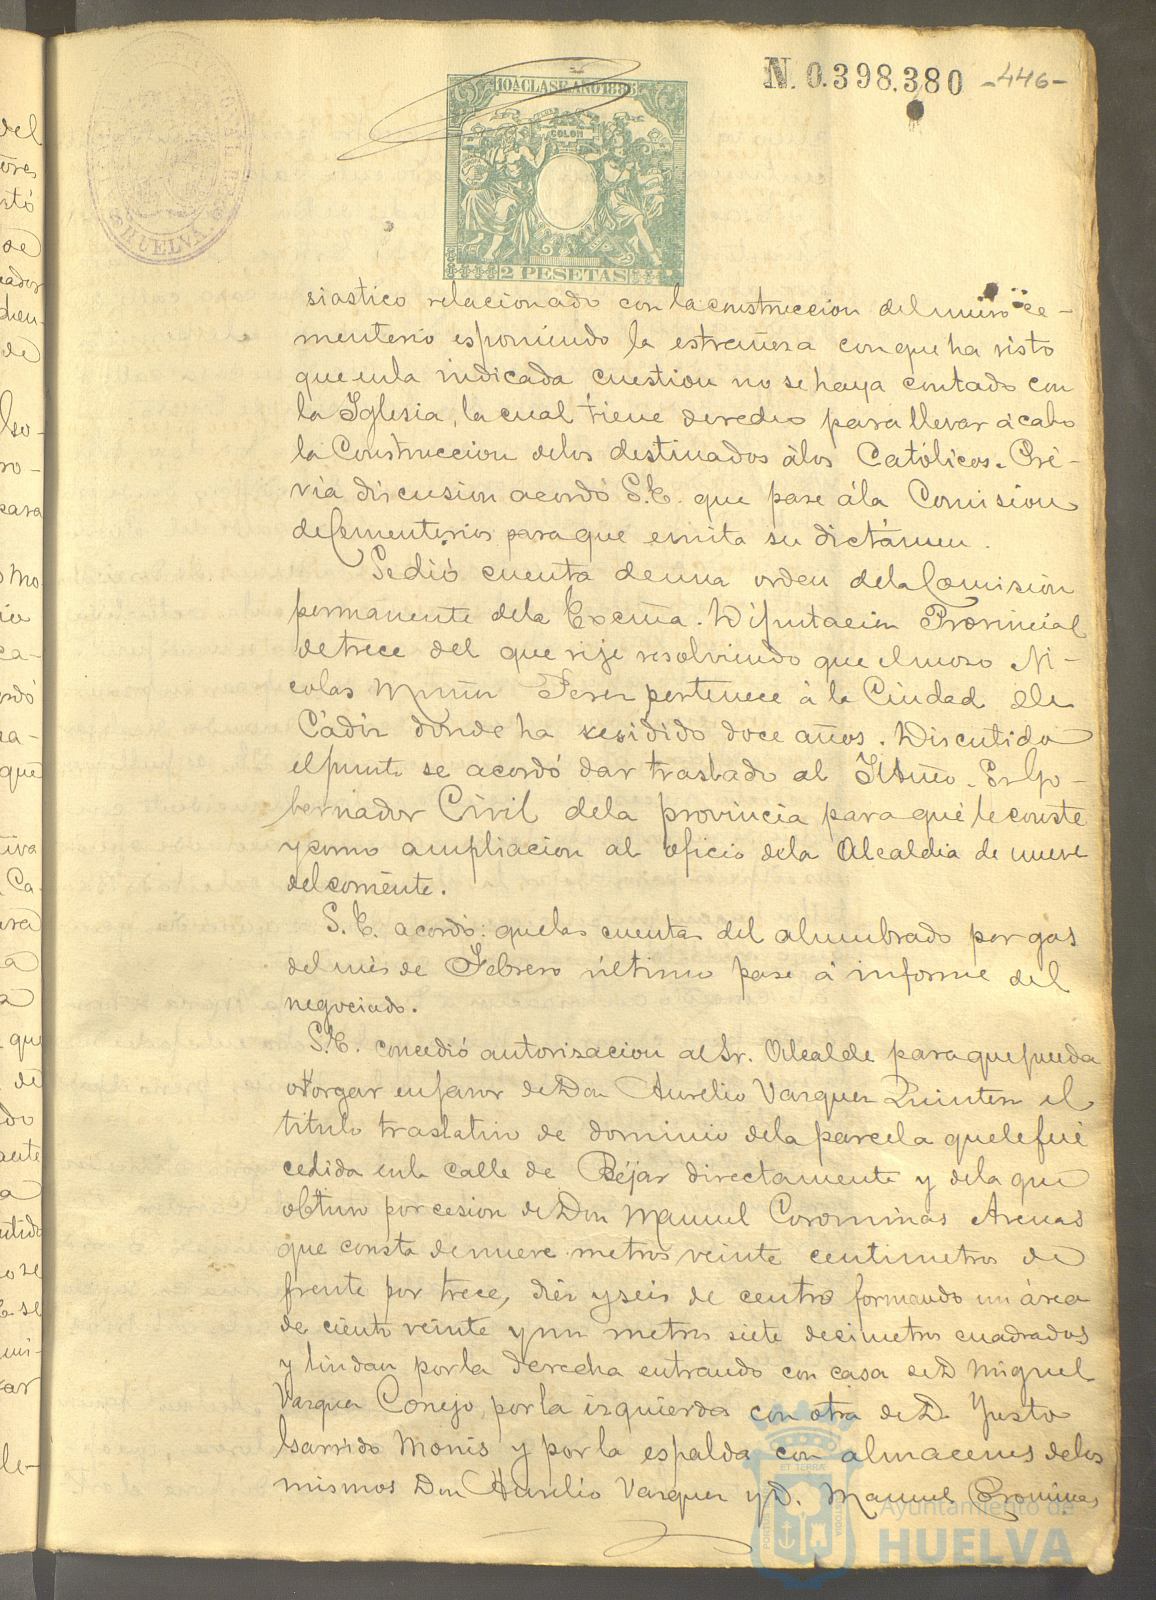 N. 0.398.380 -446-
10A CLASE. AÑO 188
COLON
2 PESETAS
HUELVA
siastico relacionado con la construccion del nuevo ce-
menterio esponiendo la estrañeza con que ha visto
que en la indicada cuestion no se haya contado con
la Iglesia, la cual tiene derecho para llevar á cabo
la Construccion de los destinados á los Católicos. Pré-
via discusion acordó S.E. que pase á la Comision
de Cementerios para que emita su dictámen.
Se dió cuenta de una orden de la Comisión
permanente de la Excma. Diputación Provincial
de trece del que rije resolviendo que el mozo Ni-
colas Muñoz Perez pertenece á la Ciudad de
Cádiz donde ha residido doce años. Discutido
el punto se acordó dar traslado al Iltmo. Sr. Go-
bernador Civil de la provincia para que le conste
y como ampliacion al oficio de la Alcaldia de nueve
del corriente.
S. E. acordó: que las cuentas del alumbrado por gas
del mes de Febrero último pase á informe del
negociado.
S.E. concedió autorizacion al Sr. Alcalde para que pueda
otorgar en favor de Don Aurelio Vazquez Quintero el
titulo traslativo de dominio de la parcela que le fué
cedida en la calle de Béjar directamente y de la que
obtuvo por cesion de Don Manuel Corominas Arenas
que consta de nueve metros veinte centimetros de
frente por trece, diez y seis de centro formando un área
de ciento veinte y un metros siete decimetros cuadrados
y lindan por la derecha entrando con casa de D. Miguel
Vazquez Conejo, por la izquierda con otra de D. Justo
Garrido Monis y por la espalda con almacenes de los
mismos Don Aurelio Vazquez y D. Manuel Corominas
Ayuntamiento de
HUELVA